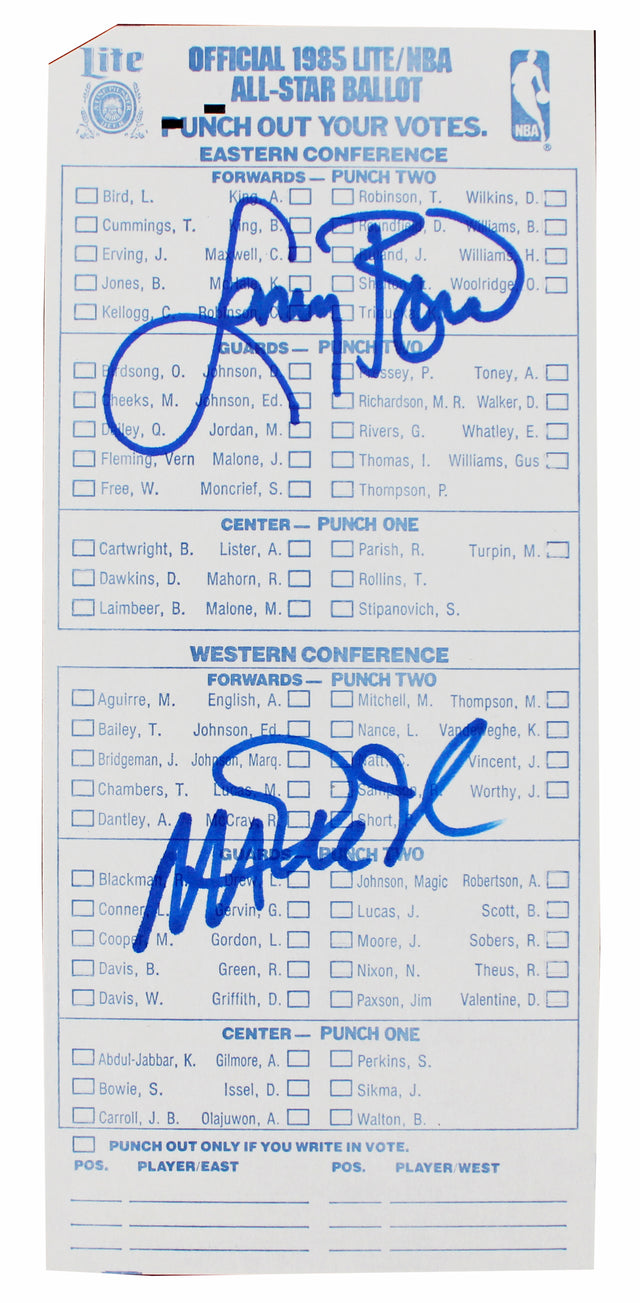 Lite OFFICIAL 1985 LITE/NBA
ALL-STAR BALLOT
PUNCH OUT YOUR VOTES.
NBA
EASTERN CONFERENCE
FORWARDS — PUNCH TWO
Bird, L. King, A. Robinson, T. Wilkins, D.
Cummings, T. King, B. Roundfield, D. Williams, B.
Erving, J. Maxwell, C. Ruland, J. Williams, H.
Jones, B. McHale, K. Shelton, L. Woolridge, O.
Kellogg, C. Robinson, C. Tripucka, K.
Larry Bird
GUARDS — PUNCH TWO
Birdsong, O. Johnson, D. Pressey, P. Toney, A.
Cheeks, M. Johnson, Ed. Richardson, M. R. Walker, D.
Dailey, Q. Jordan, M. Rivers, G. Whatley, E.
Fleming, Vern Malone, J. Thomas, I. Williams, Gus
Free, W. Moncrief, S. Thompson, P.
CENTER — PUNCH ONE
Cartwright, B. Lister, A. Parish, R. Turpin, M.
Dawkins, D. Mahorn, R. Rollins, T.
Laimbeer, B. Malone, M. Stipanovich, S.
WESTERN CONFERENCE
FORWARDS — PUNCH TWO
Aguirre, M. English, A. Mitchell, M. Thompson, M.
Bailey, T. Johnson, Ed. Nance, L. Vandeweghe, K.
Bridgeman, J. Johnson, Marq. Natt, C. Vincent, J.
Chambers, T. Lucas, M. Sampson, R. Worthy, J.
Dantley, A. McCray, R. Short, P.
Magic Johnson
GUARDS — PUNCH TWO
Blackman, R. Drew, L. Johnson, Magic Robertson, A.
Conner, L. Gervin, G. Lucas, J. Scott, B.
Cooper, M. Gordon, L. Moore, J. Sobers, R.
Davis, B. Green, R. Nixon, N. Theus, R.
Davis, W. Griffith, D. Paxson, Jim Valentine, D.
CENTER — PUNCH ONE
Abdul-Jabbar, K. Gilmore, A. Perkins, S.
Bowie, S. Issel, D. Sikma, J.
Carroll, J. B. Olajuwon, A. Walton, B.
PUNCH OUT ONLY IF YOU WRITE IN VOTE.
POS. PLAYER/EAST POS. PLAYER/WEST